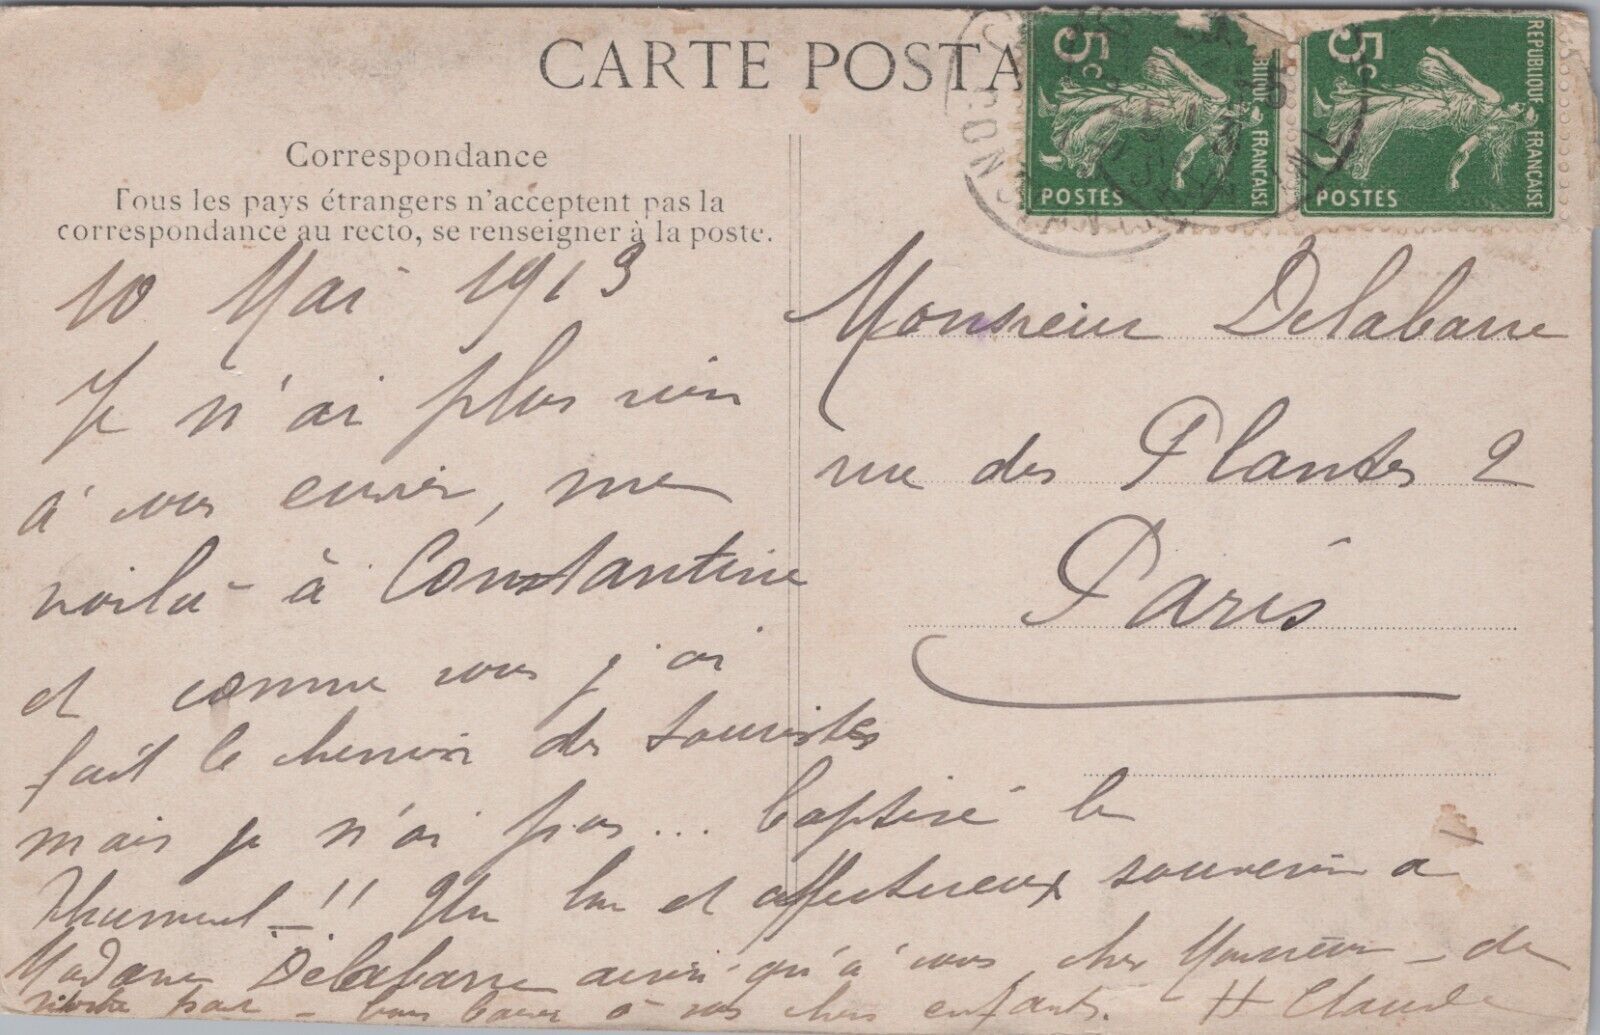 CARTE POSTA
Correspondance
Tous les pays étrangers n'acceptent pas la
correspondance au recto, se renseigner à la poste.
5c
POSTES
RÉPUBLIQUE FRANÇAISE
5c
POSTES
RÉPUBLIQUE FRANÇAISE
10 Mai 1913
Je n'ai plus rien
à vous envier, me
voilà à Constantine
et comme vous j'ai
fait le chemin des touristes
mais je n'ai pas... baptisé le
Rhummel_!! Un bon et affectueux souvenir à
Madame Delabarre ainsi qu'à vous cher Monsieur - de
notre part - bons baisers à vos chers enfants. H Claude
Monsieur Delabarre
rue des Plantes 2
Paris